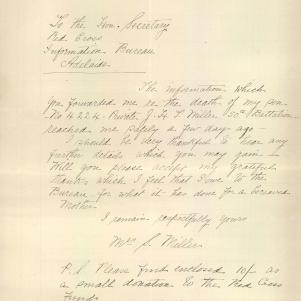 To the Hon. Secretary
Red Cross
Information Bureau
Adelaide
The information which
you forwarded me re the death of my son
No 4224 Private J. H. L. Miller 50th Battalion
reached me safely a few days ago -
I should be very thankful to hear any
further details which you may gain -
Will you please accept my grateful
thanks which I feel that I owe to the
Bureau for what it has done for a bereaved
Mother.
I remain respectfully yours
Mrs S. Miller
P.S. Please find enclosed 10/- as
a small donation to the Red Cross
Funds